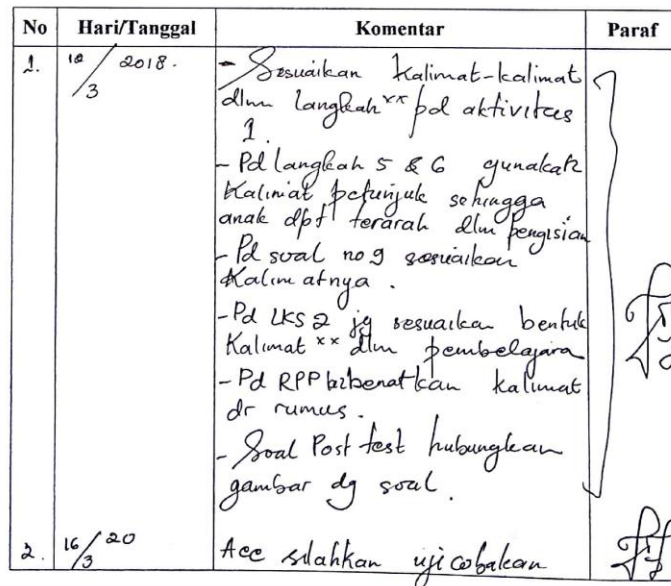 No Hari/Tanggal Komentar Paraf
1. 10/3 2018. - Sesuaikan kalimat-kalimat
dlm langkah xx pd aktivitas
1.
- Pd langkah 5 & 6 gunakah
kalimat petunjuk sehingga
anak dpt terarah dlm pengisian
- Pd soal no 9 sesuaikan
kalimatnya.
- Pd LKS 2 jg sesuaikan bentuk
kalimat xx dlm pembelajara
- Pd RPP kalimat
dr rumus.
- Soal Post test hubungkan
gambar dg soal.
2. 16/3 20 Acc silahkan uji cobakan